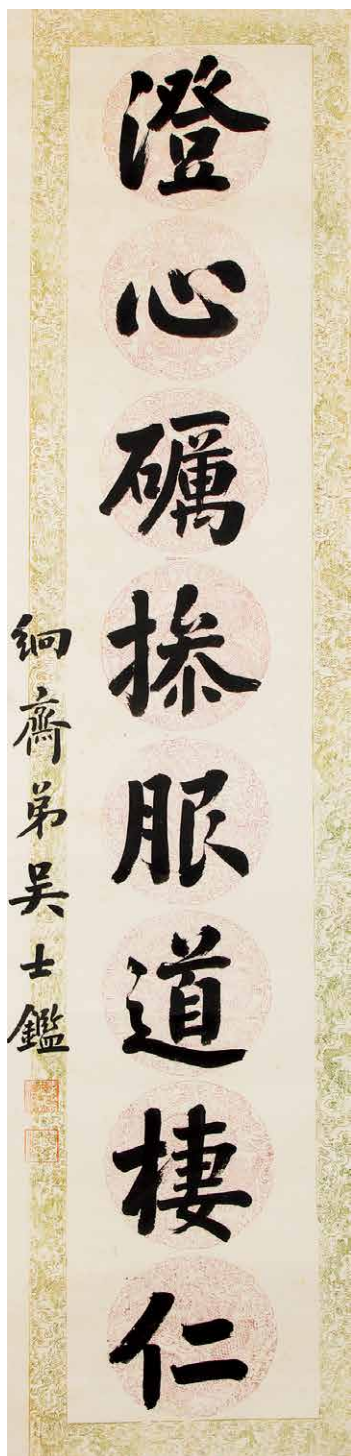 澄心礪掺服道棲仁
絅齋弟吳士鑑